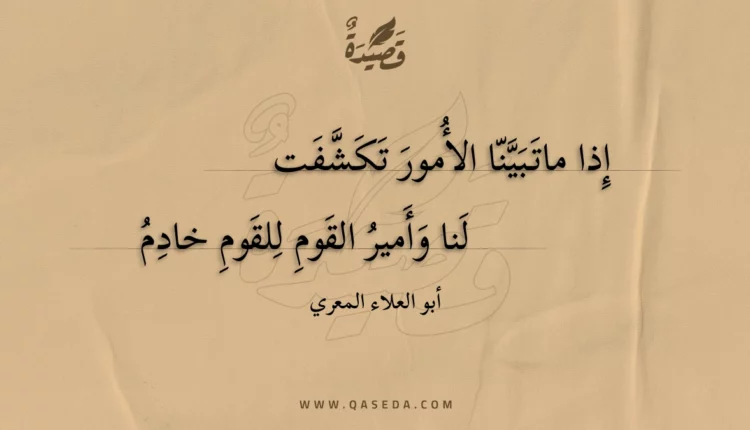 قَصِيْدَةٌ
إِذا ماتَبَيَّنّا الأُمورَ تَكَشَّفَت
لَنا وَأَميرُ القَومِ لِلقَومِ خادِمُ
أبو العلاء المعري
WWW.QASEDA.COM